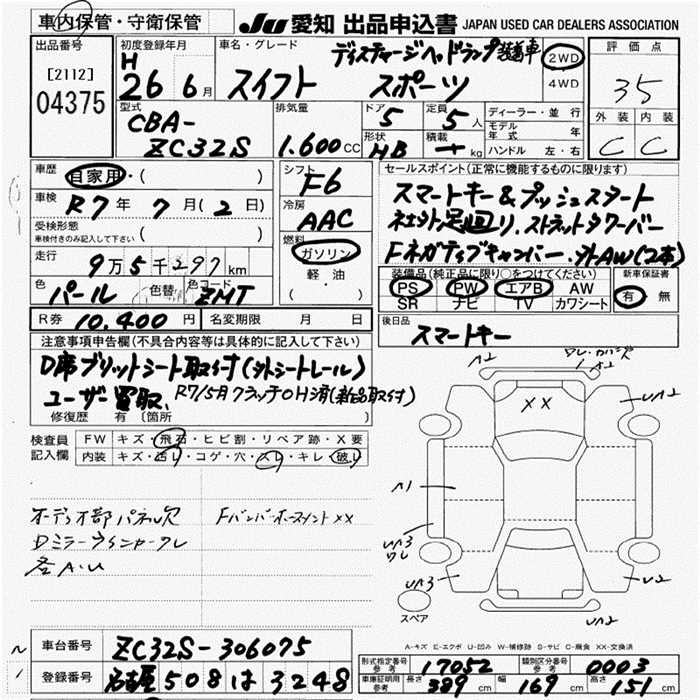 車内保管・守衛保管
JU 愛知 出品申込書 JAPAN USED CAR DEALERS ASSOCIATION
出品番号
[2112]
04375
初度登録年月
H 26年 6月
車名・グレード
ディスチャージヘッドランプ装着車
スイフト スポーツ
2WD
4WD
評価点
35
外装 内装
C C
型式
CBA-
ZC32S
排気量
1.600CC
ドア
5
定員
5人
形状
HB
積載
kg
ディーラー・並行
モデル年式 年
ハンドル 左・右
車歴
自家用・( )
車検
R7年7月(2日)
受検形態
車検付きのみ記入して下さい ( )
走行
9万5千297km
色
パール
色替
色コード
ZMT
R券 10.400円
名変期限 月 日
シフト
F6
冷房
AAC
燃料
ガソリン
軽油
( )
セールスポイント(正常に機能するものに限ります)
スマートキー&プッシュスタート
社外足廻り、ストラットタワーバー
Fネガティブキャンバー、外AW(2本)
装備品(純正品に限り○をつけてください)
PS PW エアB AW
SR ナビ TV カワシート
新車保証書
有 無
後日品
スマートキー
注意事項申告欄(不具合内容等は具体的に記入して下さい)
D席ブリットシート取付(外シートレール)
ユーザー買取、R7/5月クラッチOH済(新品取付)
修復歴 有 〔箇所 〕
検査員記入欄
FW キズ・飛石・ヒビ割・リペア跡・X要
内装 キズ・汚レ・コゲ・穴・スレ・キレ・破レ
オーディオ部パネル欠
Dミラーウインカーワレ
各A.U
FバンパーホースメントXX
A2
A2
XX
UA2
A1
UA3
ワレ
UA3
U2
UA2
スペア
A-キズ E-エクボ U-凹み W-補修跡 S-サビ C-腐食 XX-交換済
車台番号 ZC32S-306075
登録番号 名古屋 508 は 3248
型式指定番号 参考 17052
類別区分番号 参考 0003
車庫証明用 参考 長さ 389cm 幅 169cm 高さ 151cm